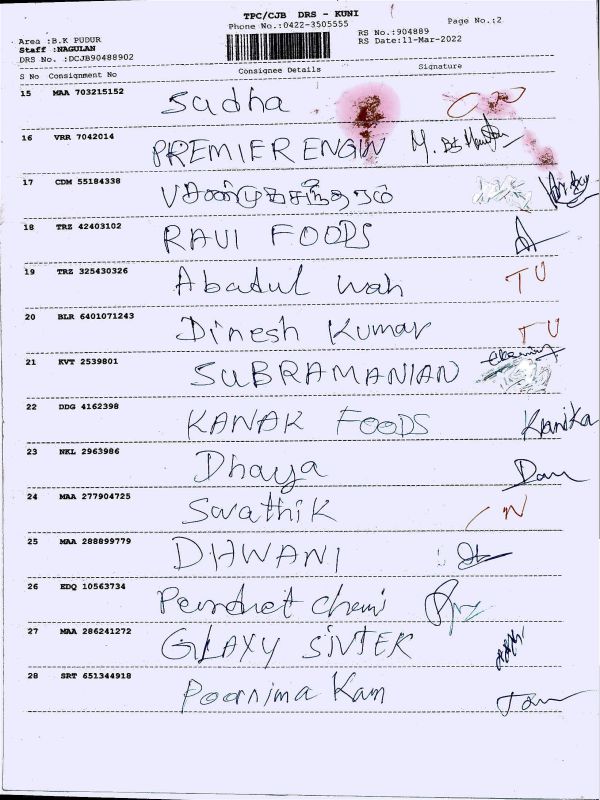 TPC/CJB DRS - KUNI
Phone No.:0422-3505555
Page No.:2
Area :B.K PUDUR
RS No.:904889
Staff :NAGULAN
RS Date:11-Mar-2022
DRS No. :DCJB90488902
S No Consignment No Consignee Details Signature
15 MAA 703215152 Sadha
16 VRR 7042014 PREMIER ENGIN
17 CDM 55184338
18 TRZ 42403102 RAVI FOODS
19 TRZ 325430326 Abadul wah TU
20 BLR 6401071243 Dinesh Kumar TU
21 KVT 2539801 SUBRAMANIAN
22 DDG 4162398 KANAK FOODS Kanika
23 NKL 2963986 Dhaya
24 MAA 277904725 Swathik
25 MAA 288899779 DHWANI
26 EDQ 10563734
27 MAA 286241272 GLAXY SIVTEK
28 SRT 651344918 Poornima Kam